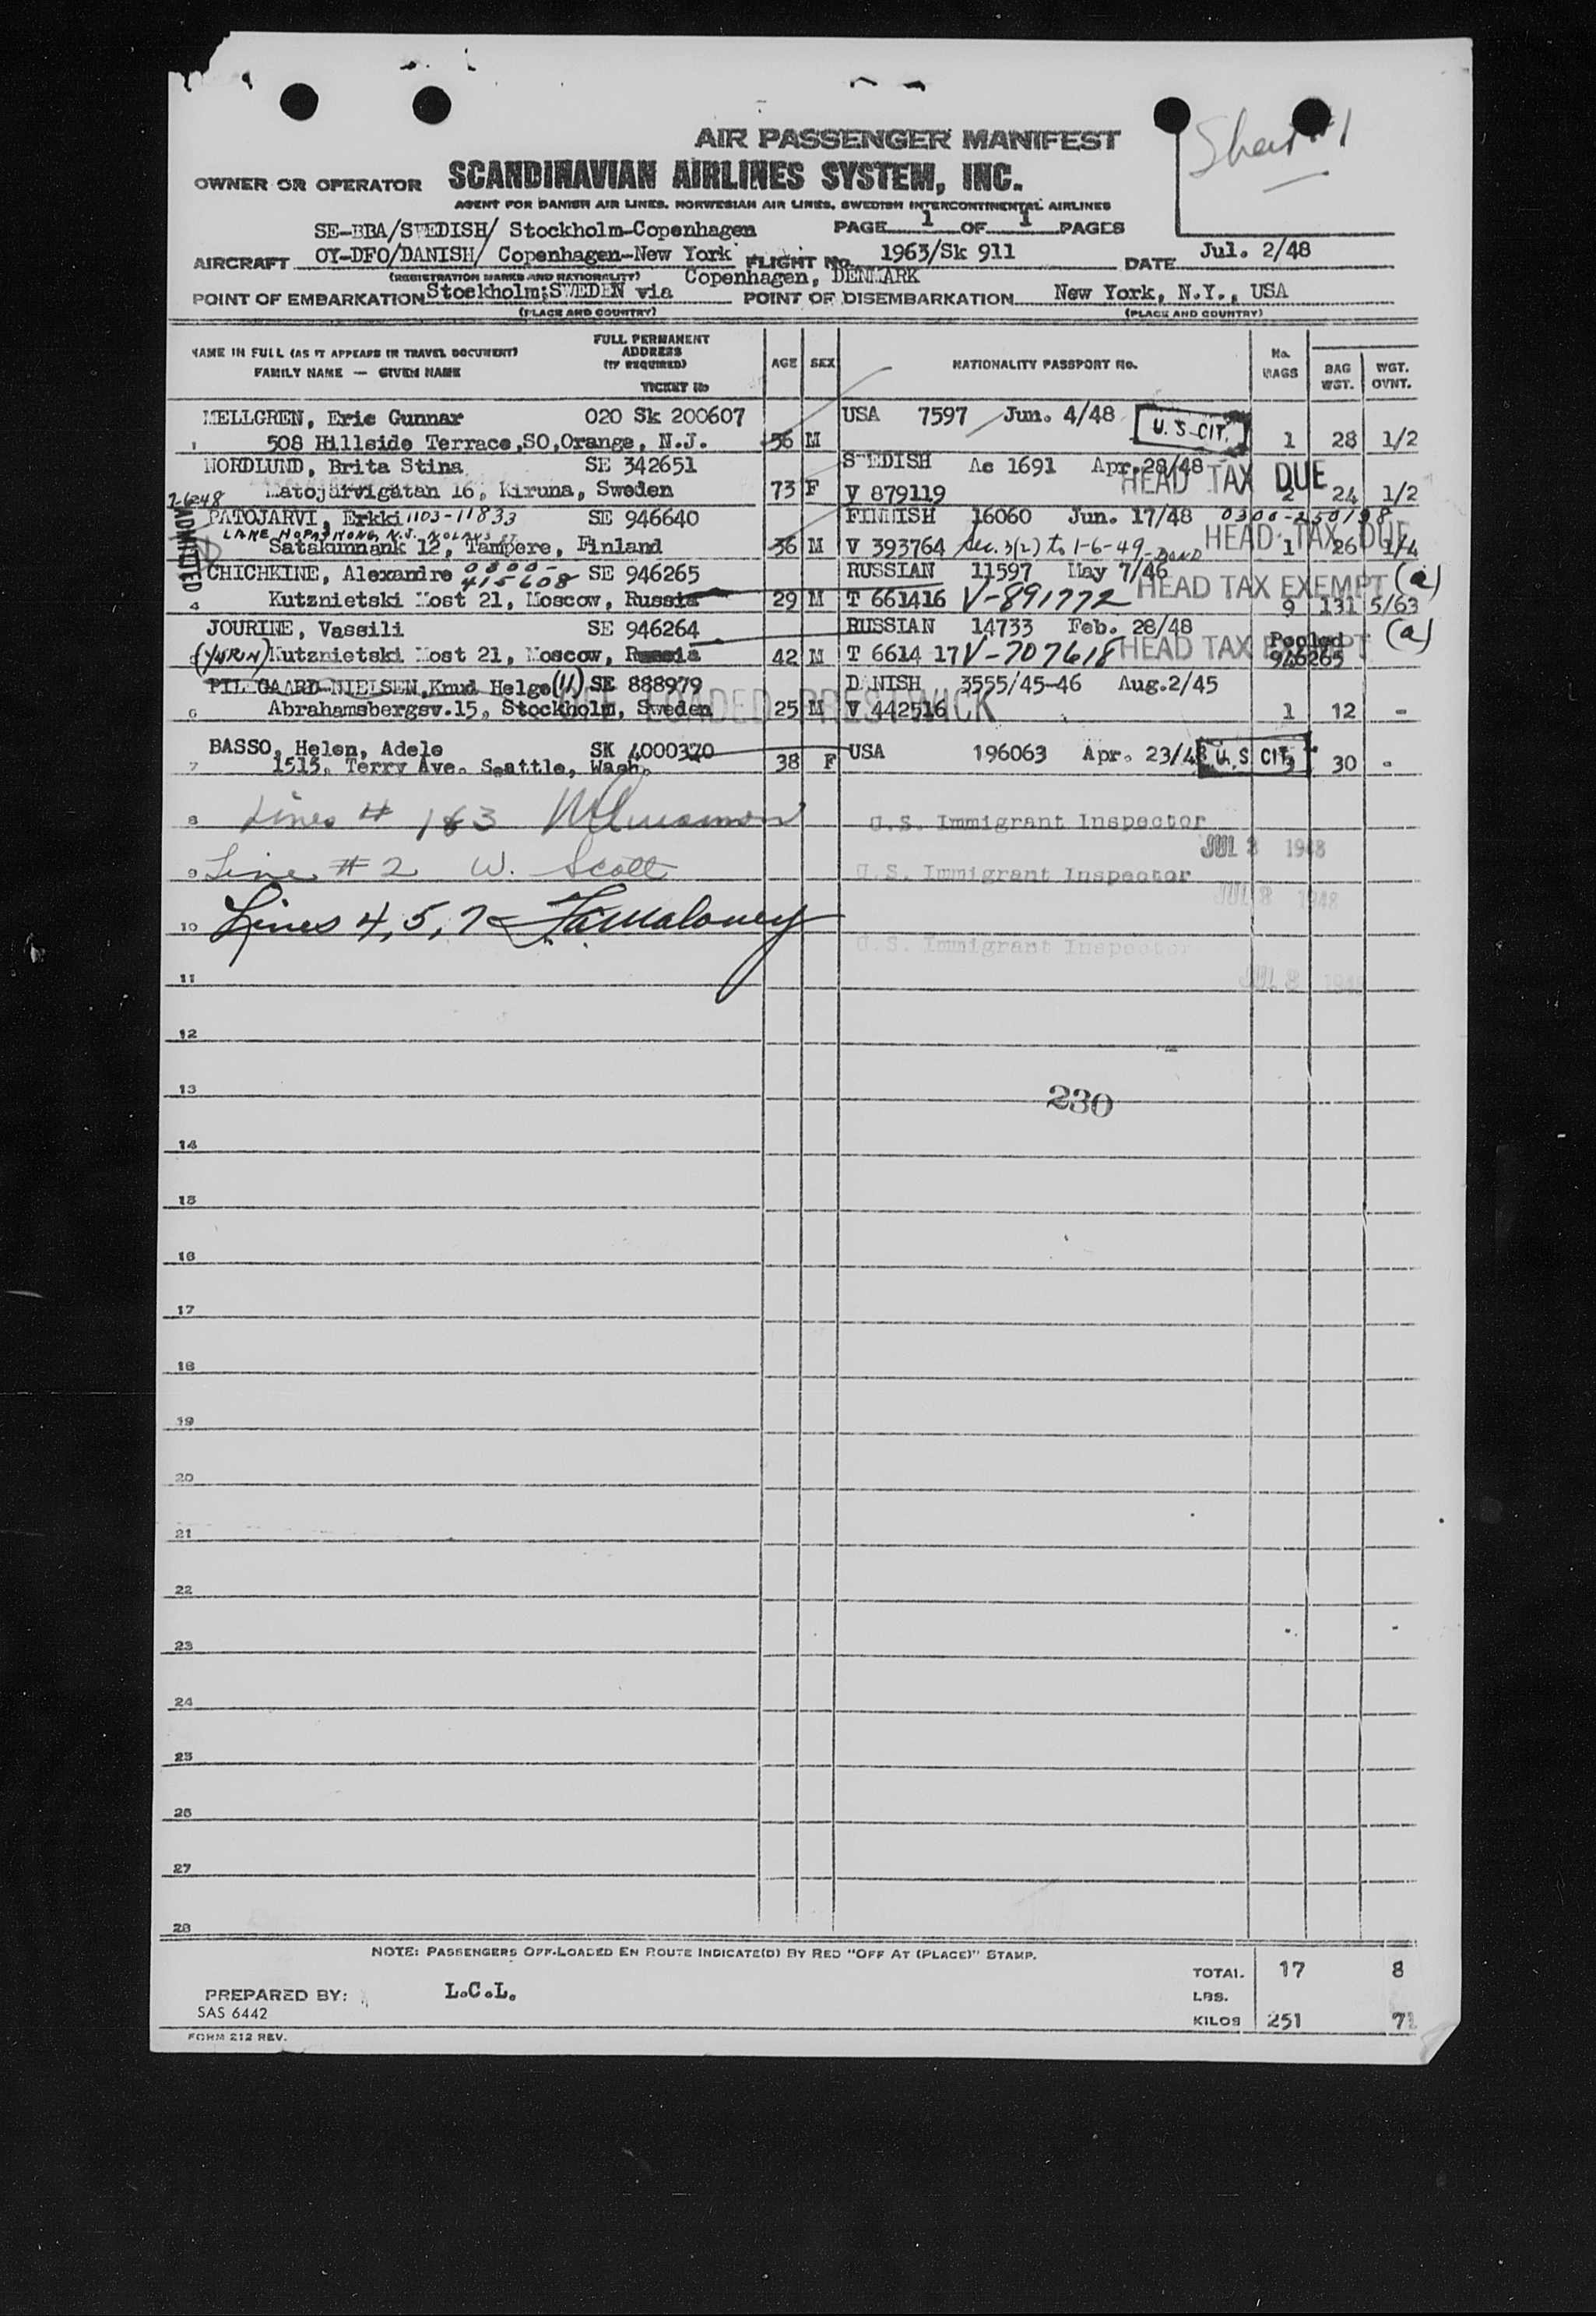 Sheet #1
AIR PASSENGER MANIFEST
OWNER OR OPERATOR SCANDINAVIAN AIRLINES SYSTEM, INC.
AGENT FOR DANISH AIR LINES, NORWEGIAN AIR LINES, SWEDISH INTERCONTINENTAL AIRLINES
SE-BBA/SWEDISH/ Stockholm-Copenhagen PAGE 1 OF 1 PAGES
AIRCRAFT OY-DFO/DANISH/ Copenhagen-New York FLIGHT No. 1963/Sk 911 DATE Jul. 2/48
(REGISTRATION MARKS AND NATIONALITY) Copenhagen, DENMARK
POINT OF EMBARKATION Stockholm;SWEDEN via POINT OF DISEMBARKATION New York, N.Y., USA
(PLACE AND COUNTRY) (PLACE AND COUNTRY)
NAME IN FULL (AS IT APPEARS IN TRAVEL DOCUMENT) FAMILY NAME — GIVEN NAME FULL PERMANENT ADDRESS (IF REQUIRED) TICKET No AGE SEX NATIONALITY PASSPORT No. No. BAGS BAG WGT. WGT. OVNT.
MELLGREN, Eric Gunnar 020 Sk 200607 USA 7597 Jun. 4/48 U.S. CIT.
1 508 Hillside Terrace,SO,Orange, N.J. 56 M 1 28 1/2
NORDLUND, Brita Stina SE 342651 SWEDISH Ac 1691 Apr.28/48 HEAD TAX DUE
Matojärvigatan 16, Kiruna, Sweden 73 F V 879119 2 24 1/2
7-6-48 ADMITTED
PATOJARVI, Erkki 1103-11833 SE 946640 FINNISH 16060 Jun. 17/48 0300-250198
LAKE HOPATKONG, N.J.
Satakunnank 12, Tampere, Finland 36 M V 393764 Sec. 3(2) to 1-6-49 HEAD TAX DUE 1 26 1/4
CHICHKINE, Alexandre 0300-415608 SE 946265 RUSSIAN 11597 May 7/46 HEAD TAX EXEMPT (a)
4 Kutznietski Most 21, Moscow, Russia 29 M T 661416 V-891772 9 131 5/63
JOURINE, Vassili SE 946264 RUSSIAN 14733 Feb. 28/48 Pooled (a)
(YURIN) Kutznietski Most 21, Moscow, Russia 42 M T 6614 17 V-707618 HEAD TAX EXEMPT 946265
PILEGAARD-NIELSEN,Knud Helge (11) SE 888979 DANISH 3555/45-46 Aug.2/45
OFF LOADED PRESTWICK
6 Abrahamsbergsv.15, Stockholm, Sweden 25 M V 442516 1 12 -
BASSO, Helen, Adele SK 4000370 USA 196063 Apr. 23/48 U.S. CIT.
7 1515, Terry Ave. Seattle, Wash. 38 F 3 30 -
8 Lines # 1&3 U.S. Immigrant Inspector
JUL 3 1948
9 Line # 2 W. Scott U.S. Immigrant Inspector
JUL 3 1948
10 Lines 4, 5, 7 Maloney U.S. Immigrant Inspector
11 JUL 3 1948
12
13 230
14
15
16
17
18
19
20
21
22
23
24
25
26
27
28
NOTE: PASSENGERS OFF-LOADED EN ROUTE INDICATE(D) BY RED "OFF AT (PLACE)" STAMP.
TOTAL 17 8
PREPARED BY: L.C.L. LBS.
SAS 6442
KILOS 251 71
FORM 212 REV.